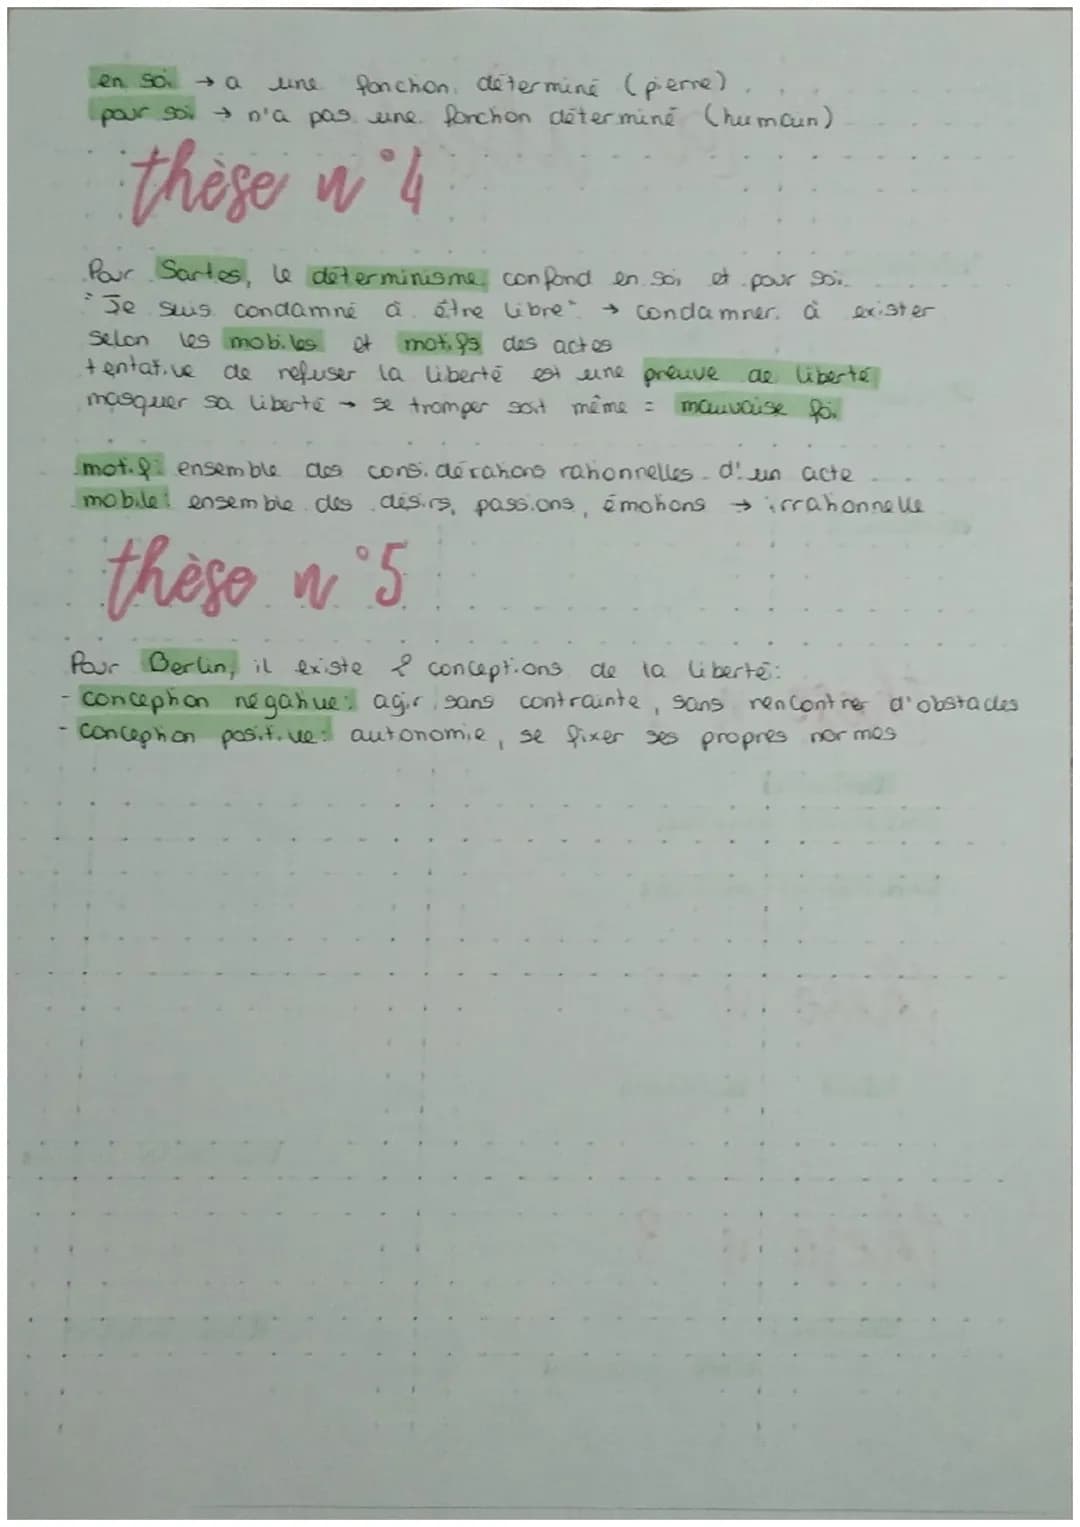 en soi → a une fonction déterminé (pierre)
pour soi → n'a pas une fonction déterminé (humain)
thèse n°4
Pour Sartes, le déterminisme confond en soi et pour soi.
"Je suis condamné à être libre" → condamner à exister
selon les mobiles et motifs des actes
tentative de refuser la liberté est une preuve de liberté
masquer sa liberté → se tromper soit même = mauvaise foi
motif: ensemble des considérations rationnelles d'un acte
mobile: ensemble des désirs, passions, émotions → irrationnelle
thèse n°5
Pour Berlin, il existe 2 conceptions de la liberté:
- conception négative: agir sans contrainte, sans rencontrer d'obstacles
- conception positive: autonomie, se fixer ses propres normes